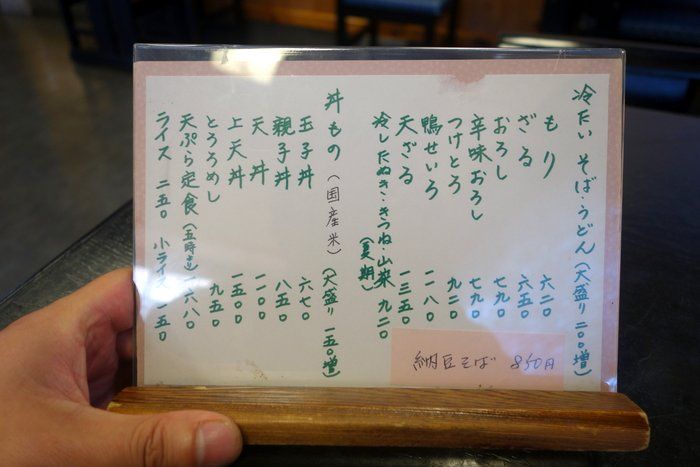 冷たい そば・うどん (大盛り二〇〇増)
もり 六二〇
ざる 六五〇
おろし 七九〇
辛味おろし 七九〇
つけとろ 九二〇
鴨せいろ 一一八〇
天ざる 一三五〇
冷したぬき・きつね・山菜 九二〇
(夏期)
丼もの (国産米) (大盛り 一五〇増)
玉子丼 六七〇
親子丼 八五〇
天丼 一一〇〇
上天丼 一五〇〇
とろろめし 九五〇
天ぷら定食 (五時より) 一六八〇
ライス 二五〇 小ライス 一五〇
納豆そば 850円